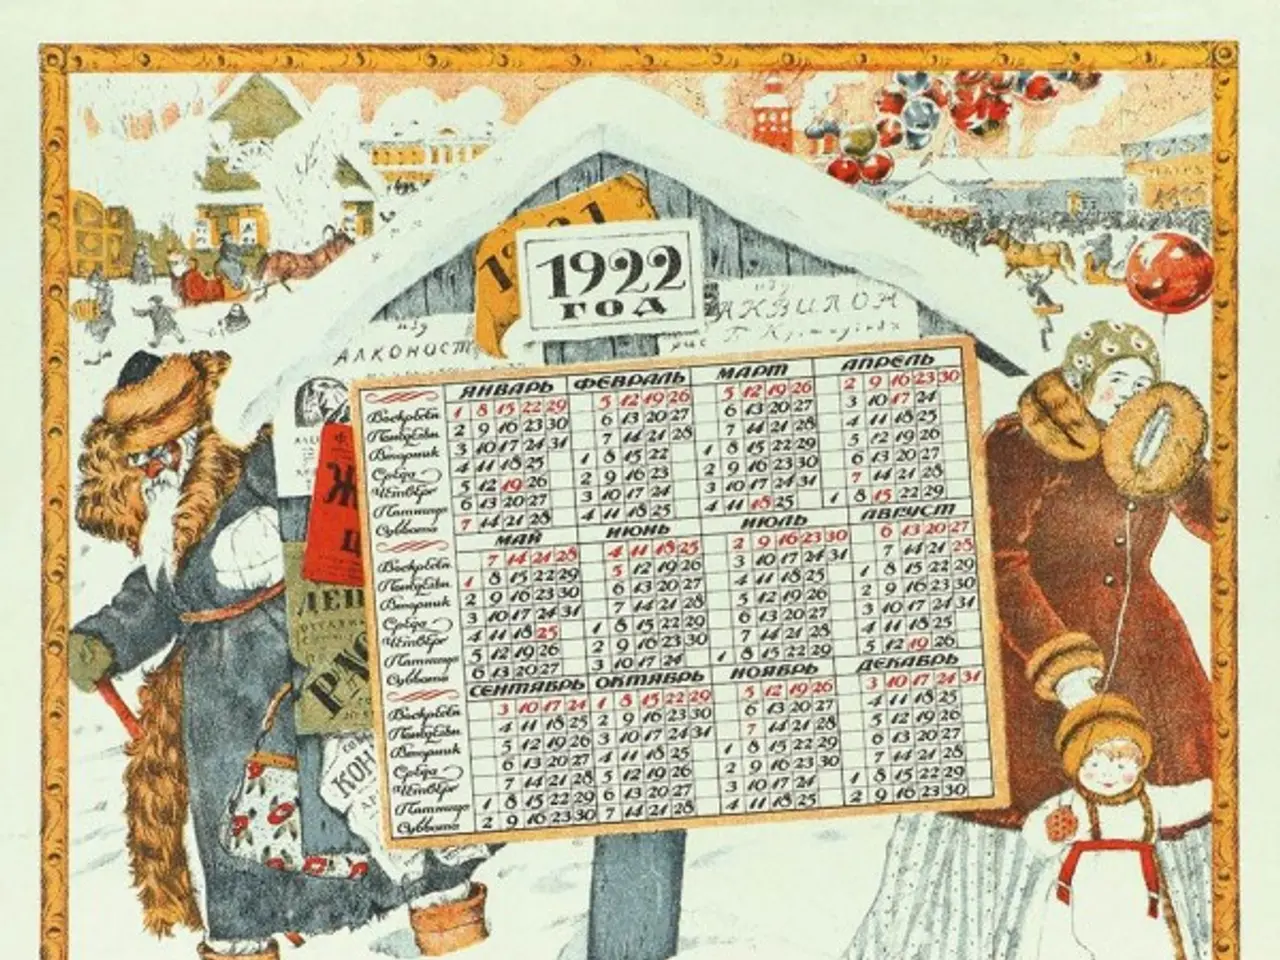 1921
1922
ГОД
изд АЛКОНОСТ
изд АКВИЛОН
рис Б Кустодiевъ
ТЕАТРЪ
Ж
Ц
ДЕП
РАС
КОН
ЯНВАРЬ ФЕВРАЛЬ МАРТ АПРЕЛЬ
Воскресен 1 8 15 22 29 5 12 19 26 5 12 19 26 2 9 16 23 30
Понедельн 2 9 16 23 30 6 13 20 27 6 13 20 27 3 10 17 24
Вторник 3 10 17 24 31 7 14 21 28 7 14 21 28 4 11 18 25
Среда 4 11 18 25 1 8 15 22 1 8 15 22 29 5 12 19 26
Четверг 5 12 19 26 2 9 16 23 2 9 16 23 30 6 13 20 27
Пятница 6 13 20 27 3 10 17 24 3 10 17 24 31 7 14 21 28
Суббота 7 14 21 28 4 11 18 25 4 11 18 25 1 8 15 22 29
МАЙ ИЮНЬ ИЮЛЬ АВГУСТ
Воскресен 7 14 21 28 4 11 18 25 2 9 16 23 30 6 13 20 27
Понедельн 1 8 15 22 29 5 12 19 26 3 10 17 24 31 7 14 21 28
Вторник 2 9 16 23 30 6 13 20 27 4 11 18 25 1 8 15 22 29
Среда 3 10 17 24 31 7 14 21 28 5 12 19 26 2 9 16 23 30
Четверг 4 11 18 25 1 8 15 22 29 6 13 20 27 3 10 17 24 31
Пятница 5 12 19 26 2 9 16 23 30 7 14 21 28 4 11 18 25
Суббота 6 13 20 27 3 10 17 24 1 8 15 22 29 5 12 19 26
СЕНТЯБРЬ ОКТЯБРЬ НОЯБРЬ ДЕКАБРЬ
Воскресен 3 10 17 24 1 8 15 22 29 5 12 19 26 3 10 17 24 31
Понедельн 4 11 18 25 2 9 16 23 30 6 13 20 27 4 11 18 25
Вторник 5 12 19 26 3 10 17 24 31 7 14 21 28 5 12 19 26
Среда 6 13 20 27 4 11 18 25 1 8 15 22 29 6 13 20 27
Четверг 7 14 21 28 5 12 19 26 2 9 16 23 30 7 14 21 28
Пятница 1 8 15 22 29 6 13 20 27 3 10 17 24 1 8 15 22 29
Суббота 2 9 16 23 30 7 14 21 28 4 11 18 25 2 9 16 23 30